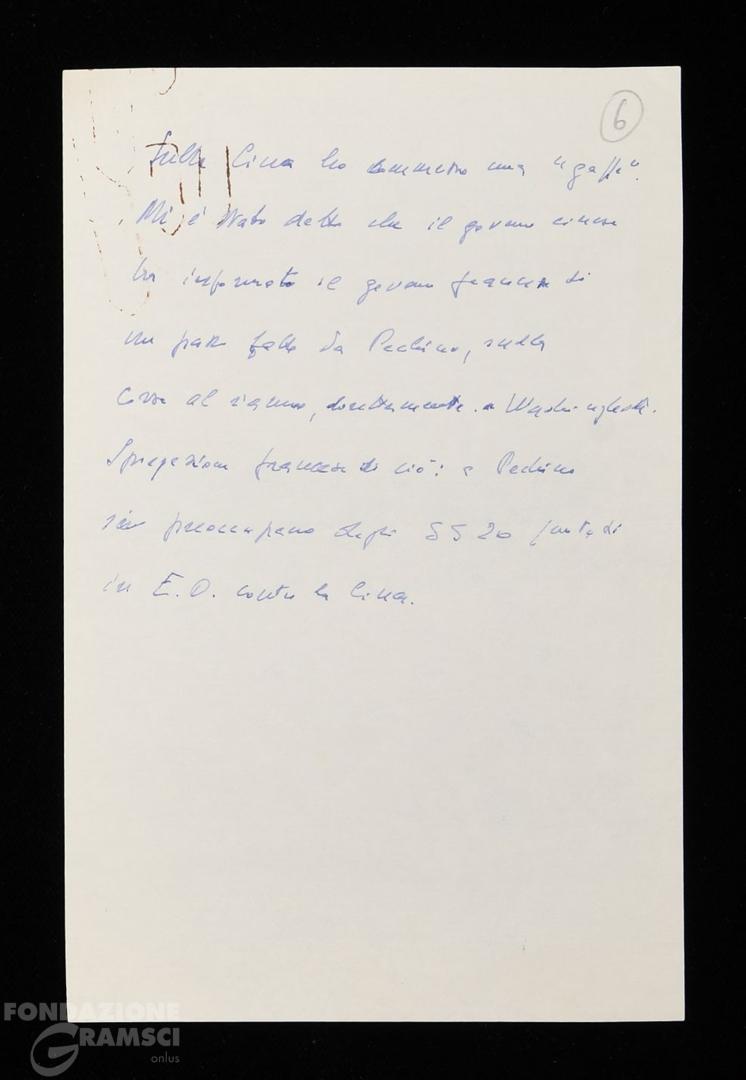 6
Sulla Cina ho commesso una "gaffe".
Mi è stato detto che il governo cinese
ha informato il governo francese di
un passo fatto da Pechino, sulla
corsa al riarmo, direttamente a Washington.
Spiegazione francese di ciò: a Pechino
si preoccupano degli SS 20 puntati
in E.O. contro la Cina.
FONDAZIONE
GRAMSCI
onlus